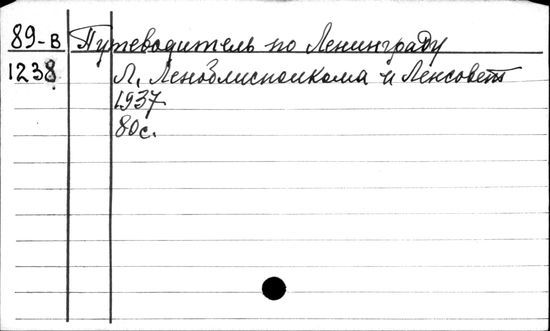 89-В Путеводитель по Ленинграду
1238 Л, Леноблисполкома и Ленсовет
1937
80с.